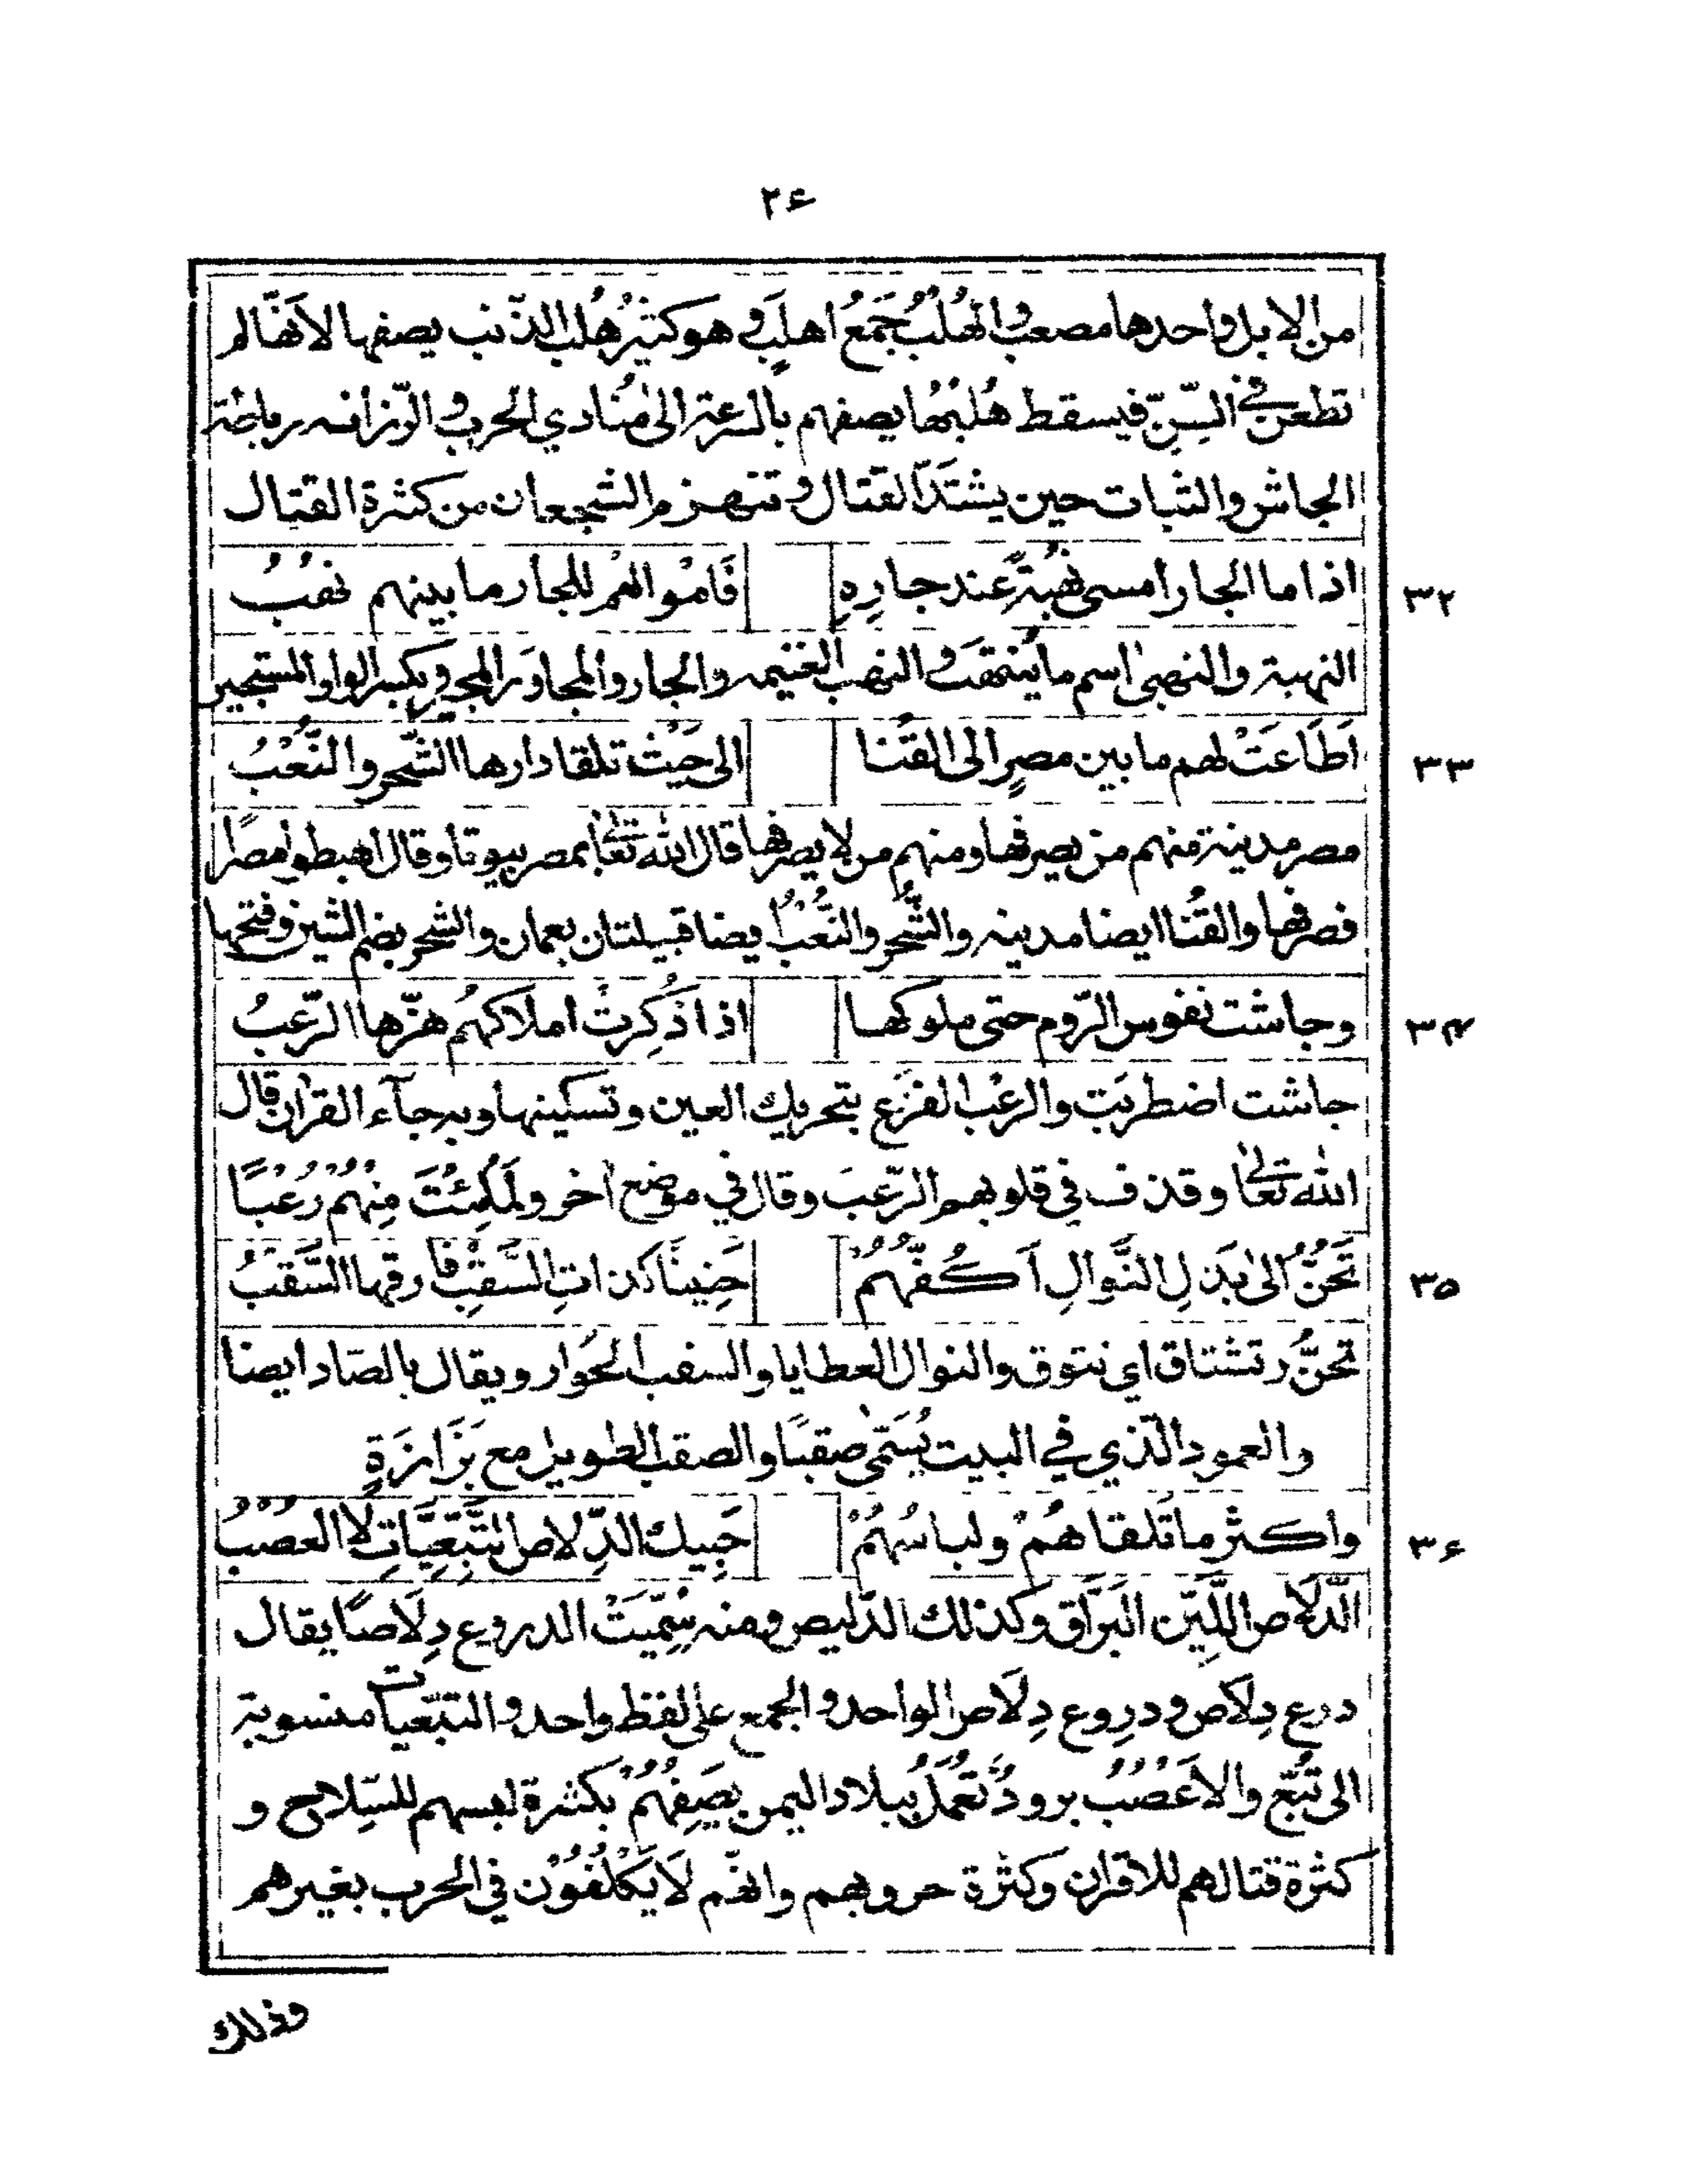 ٢۶
من الابل واحدها مصعب والهُلْبُ جَمعُ اهلَبٍ وهو كثيرُ هُلب الذّنب يصفها لأنّها لم
تطعن في السِّنّ فيسقط هُلْبُها يصفهم بالسرعة الى مُنادي الحرب والرّزانه رباطة
الجاش والثبات حين يشتدّ القتال وتنهزم الشجعان من كثرة القتال
٣٢ اذا ما الجار امسى نُهْبَةً عند جارِهِ فَامْوالهم للجار ما بينهم نهبُ
النهبة والنهبى اسم ما يُنتهَب والنهب الغنيمه والجار والمجاوَر المجير وبكسر الواو المستجير
٣٣ اَطَاعَتْ لهم ما بين مصرٍ الى القُنا الى حَيْث تلقا دارها الشُّحر والنُّعْبُ
مصر مدينة منهم من يصرفها ومنهم من لا يصرفها قال الله تعالى بمصر بيوتا وقال اهبطوا مصرًا
فصرفها والقُنا ايضا مدينه والشُّحر والنُّعْبُ ايضا قبيلتان بعمان والشحر بضم الشين وفتحها
٣۴ وجاشت نفوس الرّوم حتى ملوكها اذا ذُكِرتْ املاكهُم هزّها الرّعبُ
جاشت اضطربَت والرعْب الفزَع بتحريك العين وتسكينها وبه جآء القران قال
الله تعالى وقذف في قلوبهم الرّعبَ وقال في موضع اخر ولَمُلِئْتَ مِنْهُمْ رُعْبًا
٣٥ تَحَنُّ الى بَذلِ النَّوالِ اَكُفّهُمْ حَنِينًا كذاتِ السَّقْبِ فارقها السَّقبُ
تحنُّ تشتاق اي تتوق والنوال العطايا والسقب الحُوار ويقال بالصّاد ايضا
والعمود الّذي في البيت يُسَمّى صقبًا والصقب الطويل مع تَزَارَةٍ
٣۶ واكثر ما تَلقاهُمْ ولباسُهُمْ حَبِيك الدِّلاص التُّبَّعِيَّاتِ لا العصْبُ
الدِّلاَص اللَّيِّن البَرَّاق وكذلك الدّليص ومنه سُمِّيَتْ الدروع دِلَاصًا يقال
درع دِلاَص ودروع دِلَاص الواحد والجمع على لفظ واحد والتبّعيات منسوبة
الى تُبَّع والاعَصْبُ برودٌ تُعْمَلُ ببلاد اليمن يَصِفُهُمْ بكثرة لبسهم للسِّلاح و
كثرة قتالهم للاقران وكثرة حروبهم وانهّم لَا يَكْلُفُوْن في الحرب بغيرهم
وذلك